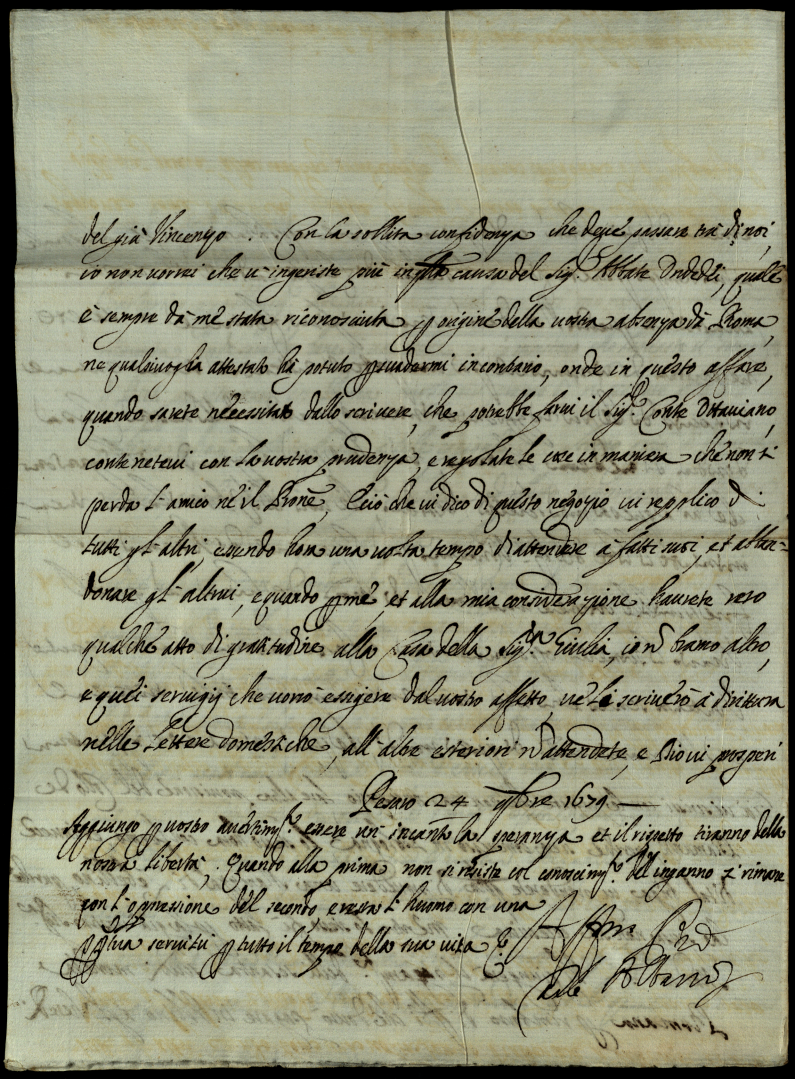 del già Vincenzo. Con la sollita confidenza che deve passare trà di noi,
io non vorrei che v'ingeriste più in qlla causa del Sig.r Abbate Ondedei, quale
è sempre dà mè stata riconosciuta p origine della vostra absenza dà Roma,
ne qualsivoglia attestato hà potuto psuadermi in contrario, onde in questo affare,
quando sarete necessitato dallo scrivere, che potrebbe farvi il Sig.r Conte Ottaviano,
contenetevi con la vostra prudenza, e regolate le cose in maniera che non si
perda l'amico nè il Prone, e ciò che vi dico di questo negozio vi replico di
tutti gl'altri, essendo hora una volta tempo d'attendere à fatti suoi, et abban-
donare gl'altrui, e quando p me, et alla mia considerazione haurete reso
qualche atto di gratitudine alla Casa della Sig.ra Giulia, io nõ bramo altro,
e queli servigij che vorrò esigere dal vostro affetto, ve li scriverò à dirittura
nelle lettere domestiche, all'altre esteriori nõ attendete, e Dio vi prosperi
Pesaro 24 9bre 1679
Aggiungo p vostro avertim.to essere un'incanto la speranza et il rispetto tiranno della
nostra libertà, Quando alla prima non si resiste col conoscim.to dell'inganno si rimane
con l'oppressione del secondo, e resta l'huomo con una
pptua servitù p tutto il tempo della sua vita
Affmo
Albani